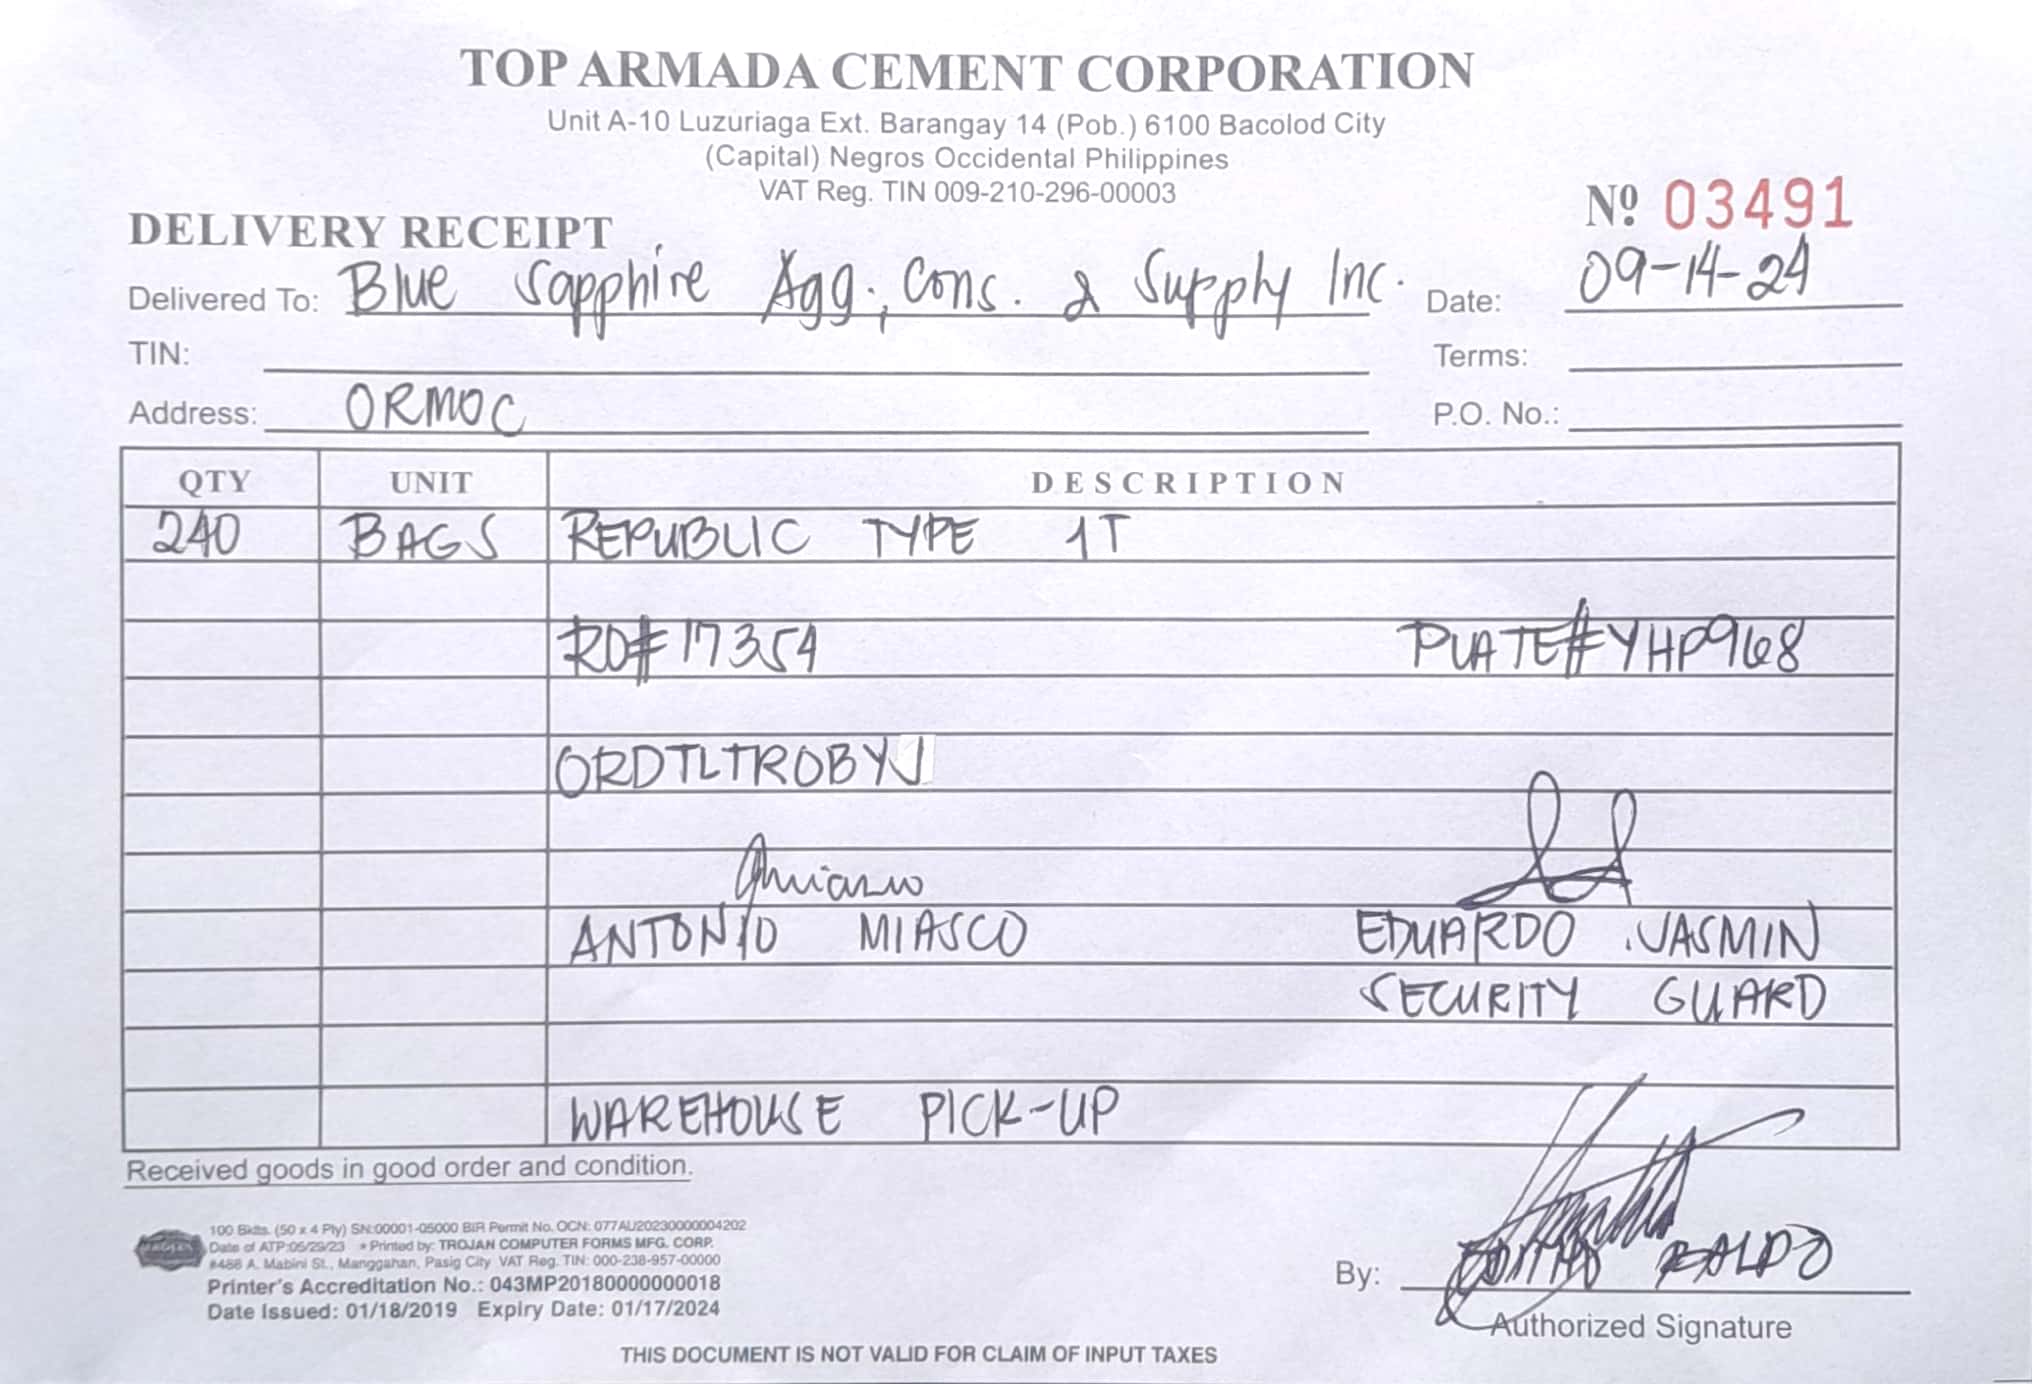 TOP ARMADA CEMENT CORPORATION
Unit A-10 Luzuriaga Ext. Barangay 14 (Pob.) 6100 Bacolod City
(Capital) Negros Occidental Philippines
VAT Reg. TIN 009-210-296-00003
Nº 03491
DELIVERY RECEIPT
Delivered To: Blue Sapphire Agg., Cons. & Supply Inc. Date: 09-14-24
TIN: Terms:
Address: ORMOC P.O. No.:
QTY UNIT DESCRIPTION
240 BAGS REPUBLIC TYPE 1T
RO# 17354 PLATE# YHP968
ORDTLTROBYJ
ANTONIO MIASCO EDUARDO JASMIN
SECURITY GUARD
WAREHOUSE PICK-UP
Received goods in good order and condition.
100 Bklts. (50 x 4 Ply) SN:00001-05000 BIR Permit No. OCN: 077AU20230000004202
Date of ATP:05/29/23 * Printed by: TROJAN COMPUTER FORMS MFG. CORP.
#488 A. Mabini St., Manggahan, Pasig City VAT Reg. TIN: 000-238-957-00000
Printer's Accreditation No.: 043MP20180000000018
Date Issued: 01/18/2019 Expiry Date: 01/17/2024
By: BALDO
Authorized Signature
THIS DOCUMENT IS NOT VALID FOR CLAIM OF INPUT TAXES